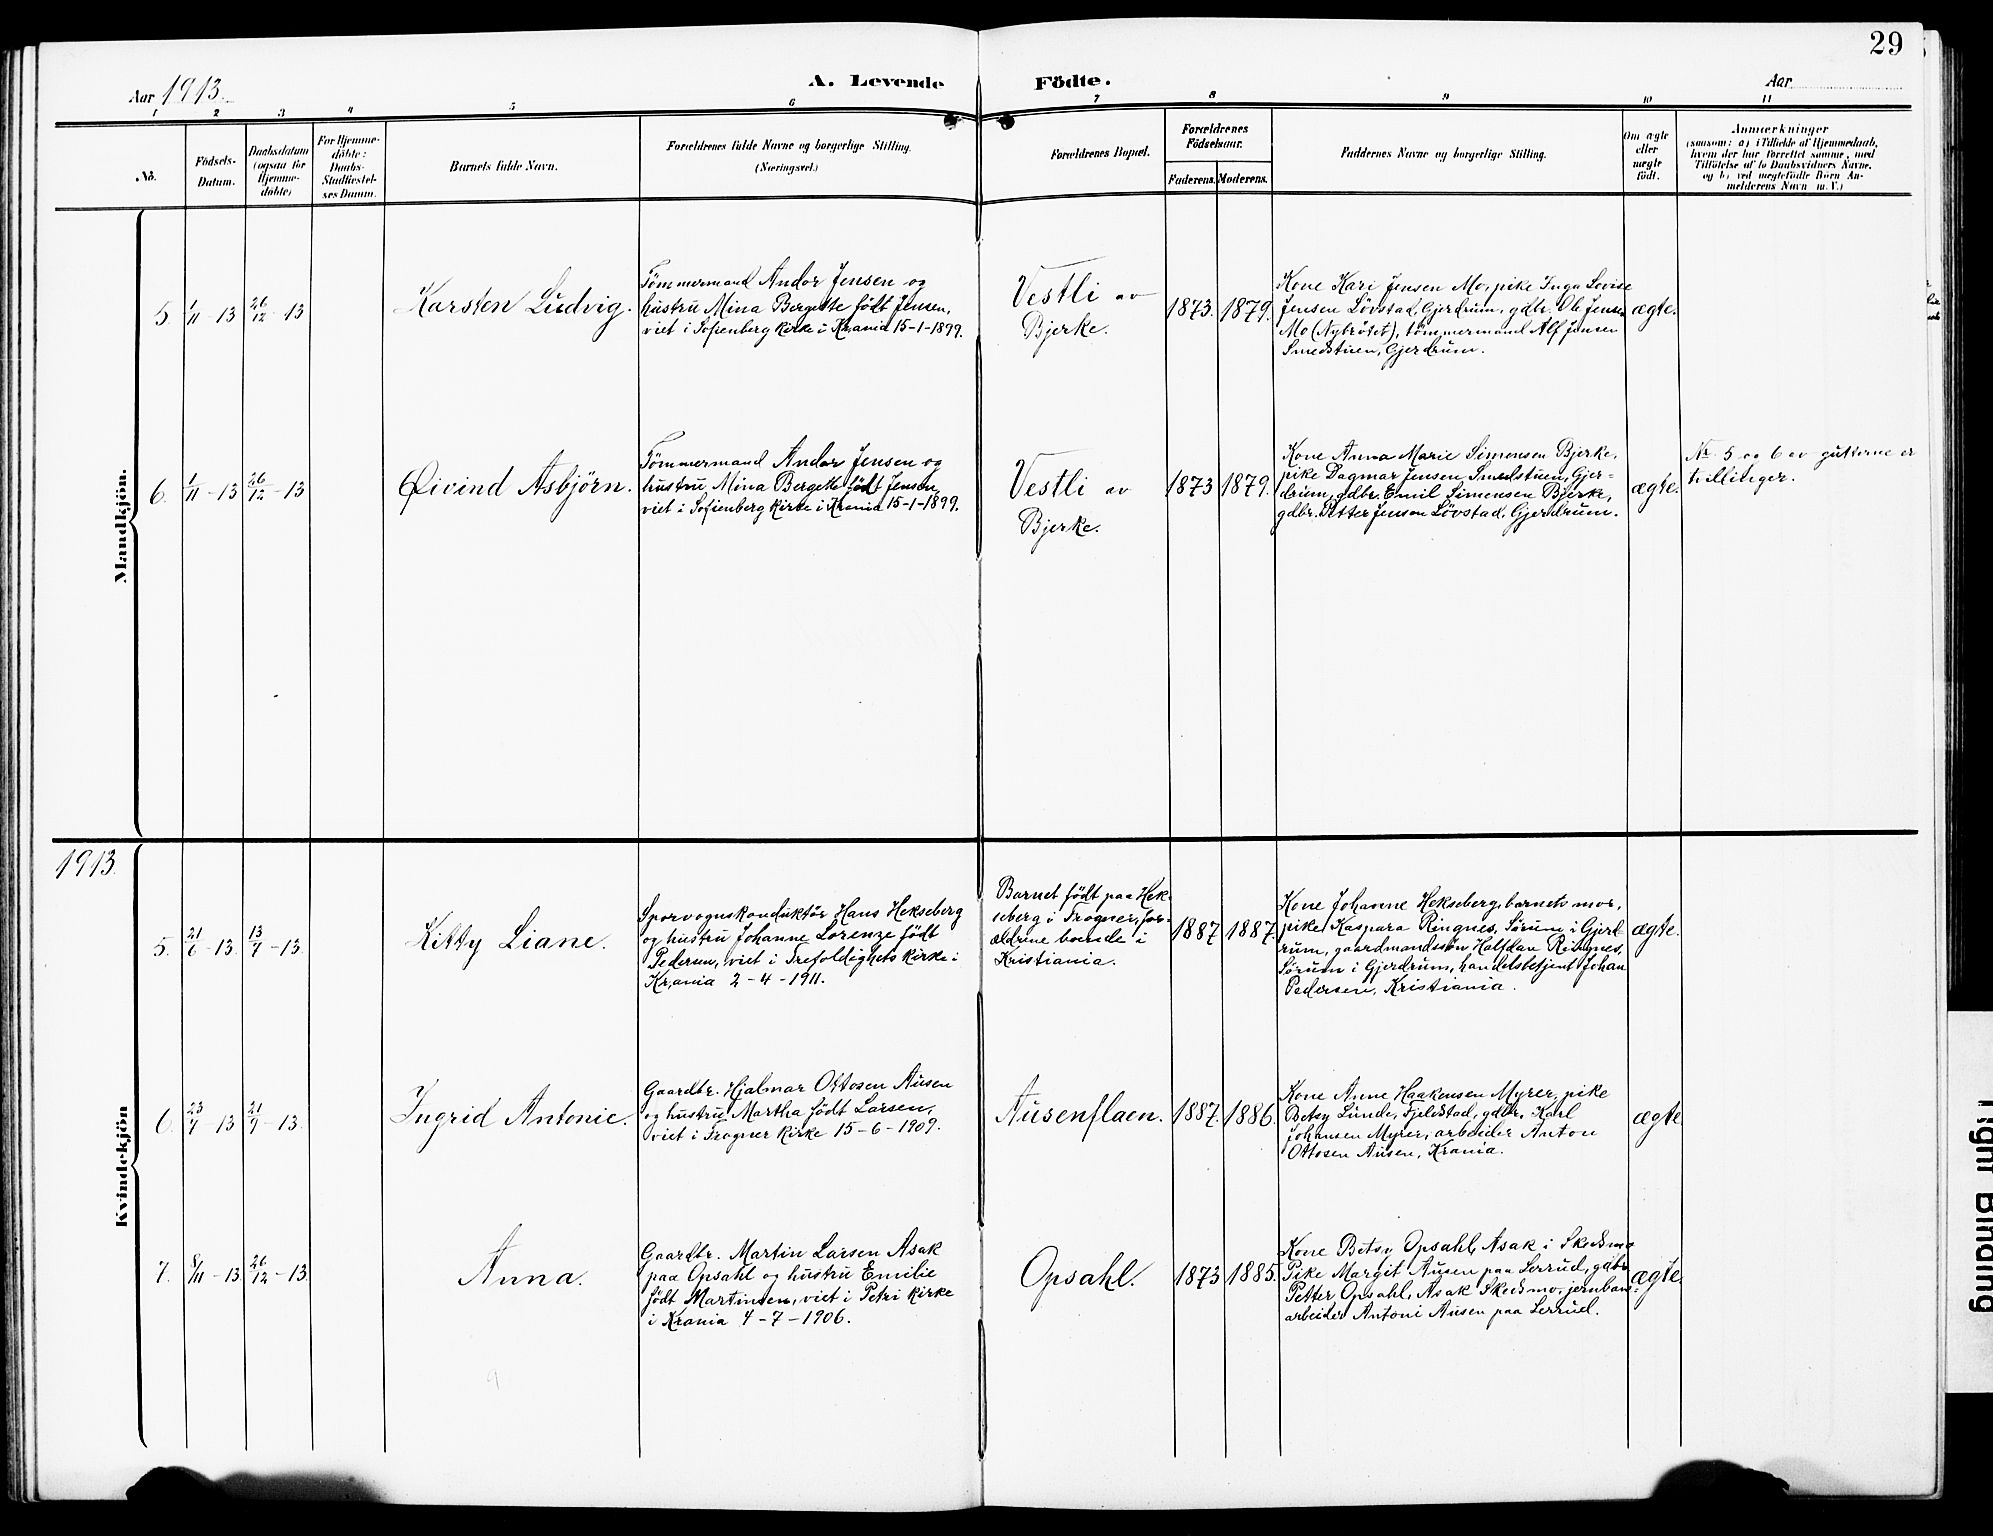 29
Aar 1913.
A. Levende Födte.
Aar
1 2 3 4 5 6 7 8 9 10 11
No.
Födsels-
Datum.
Daabsdatum
(ogsaa for
Hjemme-
döbte)
For Hjemme-
döbte:
Daabs-
Stadfæstel-
ses Datum.
Barnets fulde Navn.
Forældrenes fulde Navne og borgerlige Stilling.
(Næringsvei.)
Forældrenes Bopæl.
Forældrenes
Födselsaar.
Faderens. Moderens.
Faddernes Navne og borgerlige Stilling.
Om ægte
eller
uægte
födt.
Anmærkninger
(saasom: a) i Tilfælde af Hjemmedaab,
hvem der har forrettet samme, med
Tilföielse af to Daabsvidners Navne.
og b) ved uægtefödte Börn An-
melderens Navn m. V.)
Mandkjön.
5. 1/11-13 26/12-13
Karsten Ludvig.
Tömmermand Andor Jensen og
hustru Mina Bergette født Jensen,
viet i Sofienberg kirke i Krania 15-1-1899.
Vestli av
Bjerke.
1873. 1879.
Kone Kari Jensen Mo, pike Inga Lovise
Jensen Lövstad, Gjerdrum, gdbr. Ole Jensen
Mo (Nybrötet), tömmermand Alf Jensen
Smedstuen, Gjerdrum.
ægte.
6. 1/11-13 26/12-13
Øivind Asbjörn.
Tömmermand Andor Jensen og
hustru Mina Bergette født Jensen,
viet i Sofienberg kirke i Krania 15-1-1899.
Vestli av
Bjerke.
1873 1879.
Kone Anna Marie Simonsen Bjerke,
pike Dagmar Jensen Smedstuen, Gjer-
drum, gdbr. Emil Simensen Bjerke,
gdbr. Petter Jensen Lövstad, Gjerdrum.
ægte.
Nr. 5 og 6 av gutterne er
tvillinger.
1913.
Kvindekjön
5. 21/6-13 13/7-13.
Kitty Liane.
Sporvognskonduktör Hans Hekseberg
og hustru Johanne Lorenze født
Pedersen, viet i Trefoldighets kirke i
Krania 2-4-1911.
Barnet födt paa Hek-
seberg i Frogner, for-
ældrene boende i
Kristiania.
1887 1887.
Kone Johanne Hekseberg, barnets mor,
pike Kaspara Ringnes, Sörum i Gjerd-
rum, gaardmandssön Halfdan Ringnes,
Sörum i Gjerdrum, handelsbetjent Johan
Pedersen, Kristiania.
ægte.
6. 23/7-13 21/9-13.
Ingrid Antonie.
Gaardbr. Hjalmar Ottosen Ausen
og hustru Martha födt Larsen,
viet i Frogner kirke 15-6-1909.
Ausenflaen.
1887. 1886.
Kone Anne Haakensen Myrer, pike
Betsy Lunde, Fjeldstad, gdbr. Karl
Johansen Myrer, arbeider Anton
Ottosen Ausen, Krania.
ægte
7. 8/11-13 26/12-13.
Anna.
Gaardbr. Martin Larsen Asak
paa Opsahl og hustru Emilie
födt Martinsen, viet i Petri kirke
i Krania 4-7-1906.
Opsahl.
1873 1885.
Kone Betsy Opsahl, Asak i Skedsmo
Pike Margit Ausen paa Lerrud, gdbr.
Petter Opsahl, Asak Skedsmo, jernbane-
arbeider Antoni Ausen paa Lerrud.
ægte.
Tight Binding